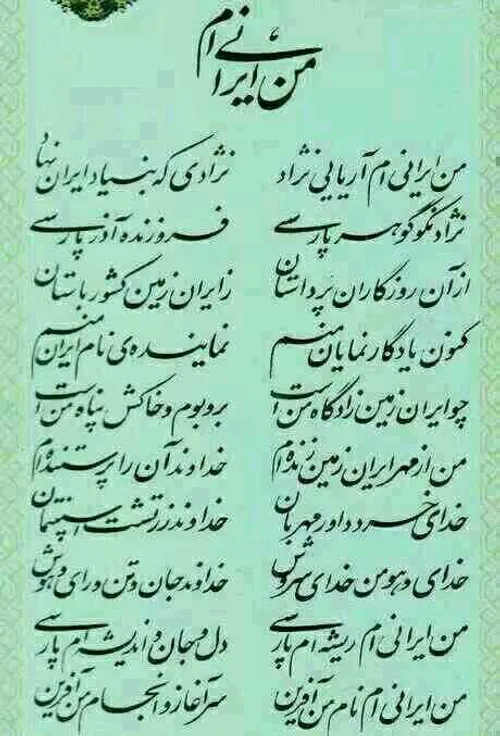 من ایرانی ام
من ایرانی ام آریایی نژاد نژادی که بنیاد ایران نهاد
نژاد نکو گوهر پارسی فروزنده آذر پارسی
از آن روزگاران پر داستان ز ایران زمین کشور باستان
کنون یادگار نمایان منم نماینده ی نام ایران منم
چو ایران زمین زادگاه من است بر و بوم و خاکش پناه من است
من از مهر ایران زمین زنده ام خداوند آن را پرستنده ام
خدای خرد داور مهربان خداوند زرتشت اسپنتمان
خدای وهومن خدای سروش خداوند جان و تن و رای و هوش
من ایرانی ام ریشه ام پارسی دل و جان و اندیشه ام پارسی
من ایرانی ام نام من آفرین سرآغاز و انجام من آفرین